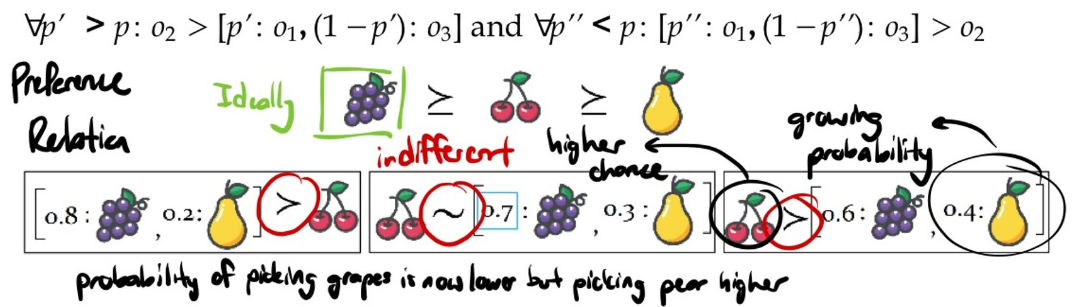 ∀p′ > p: o₂ > [p′: o₁, (1 − p′): o₃] and ∀p″ < p: [p″: o₁, (1 − p″): o₃] > o₂
Preference
Relation
Ideally
≥ ≥
indifferent
higher
chance
growing
probability
[0.8: , 0.2: ] ≻
∼ [0.7: , 0.3: ]
≻ [0.6: , 0.4: ]
probability of picking grapes is now lower but picking pear higher